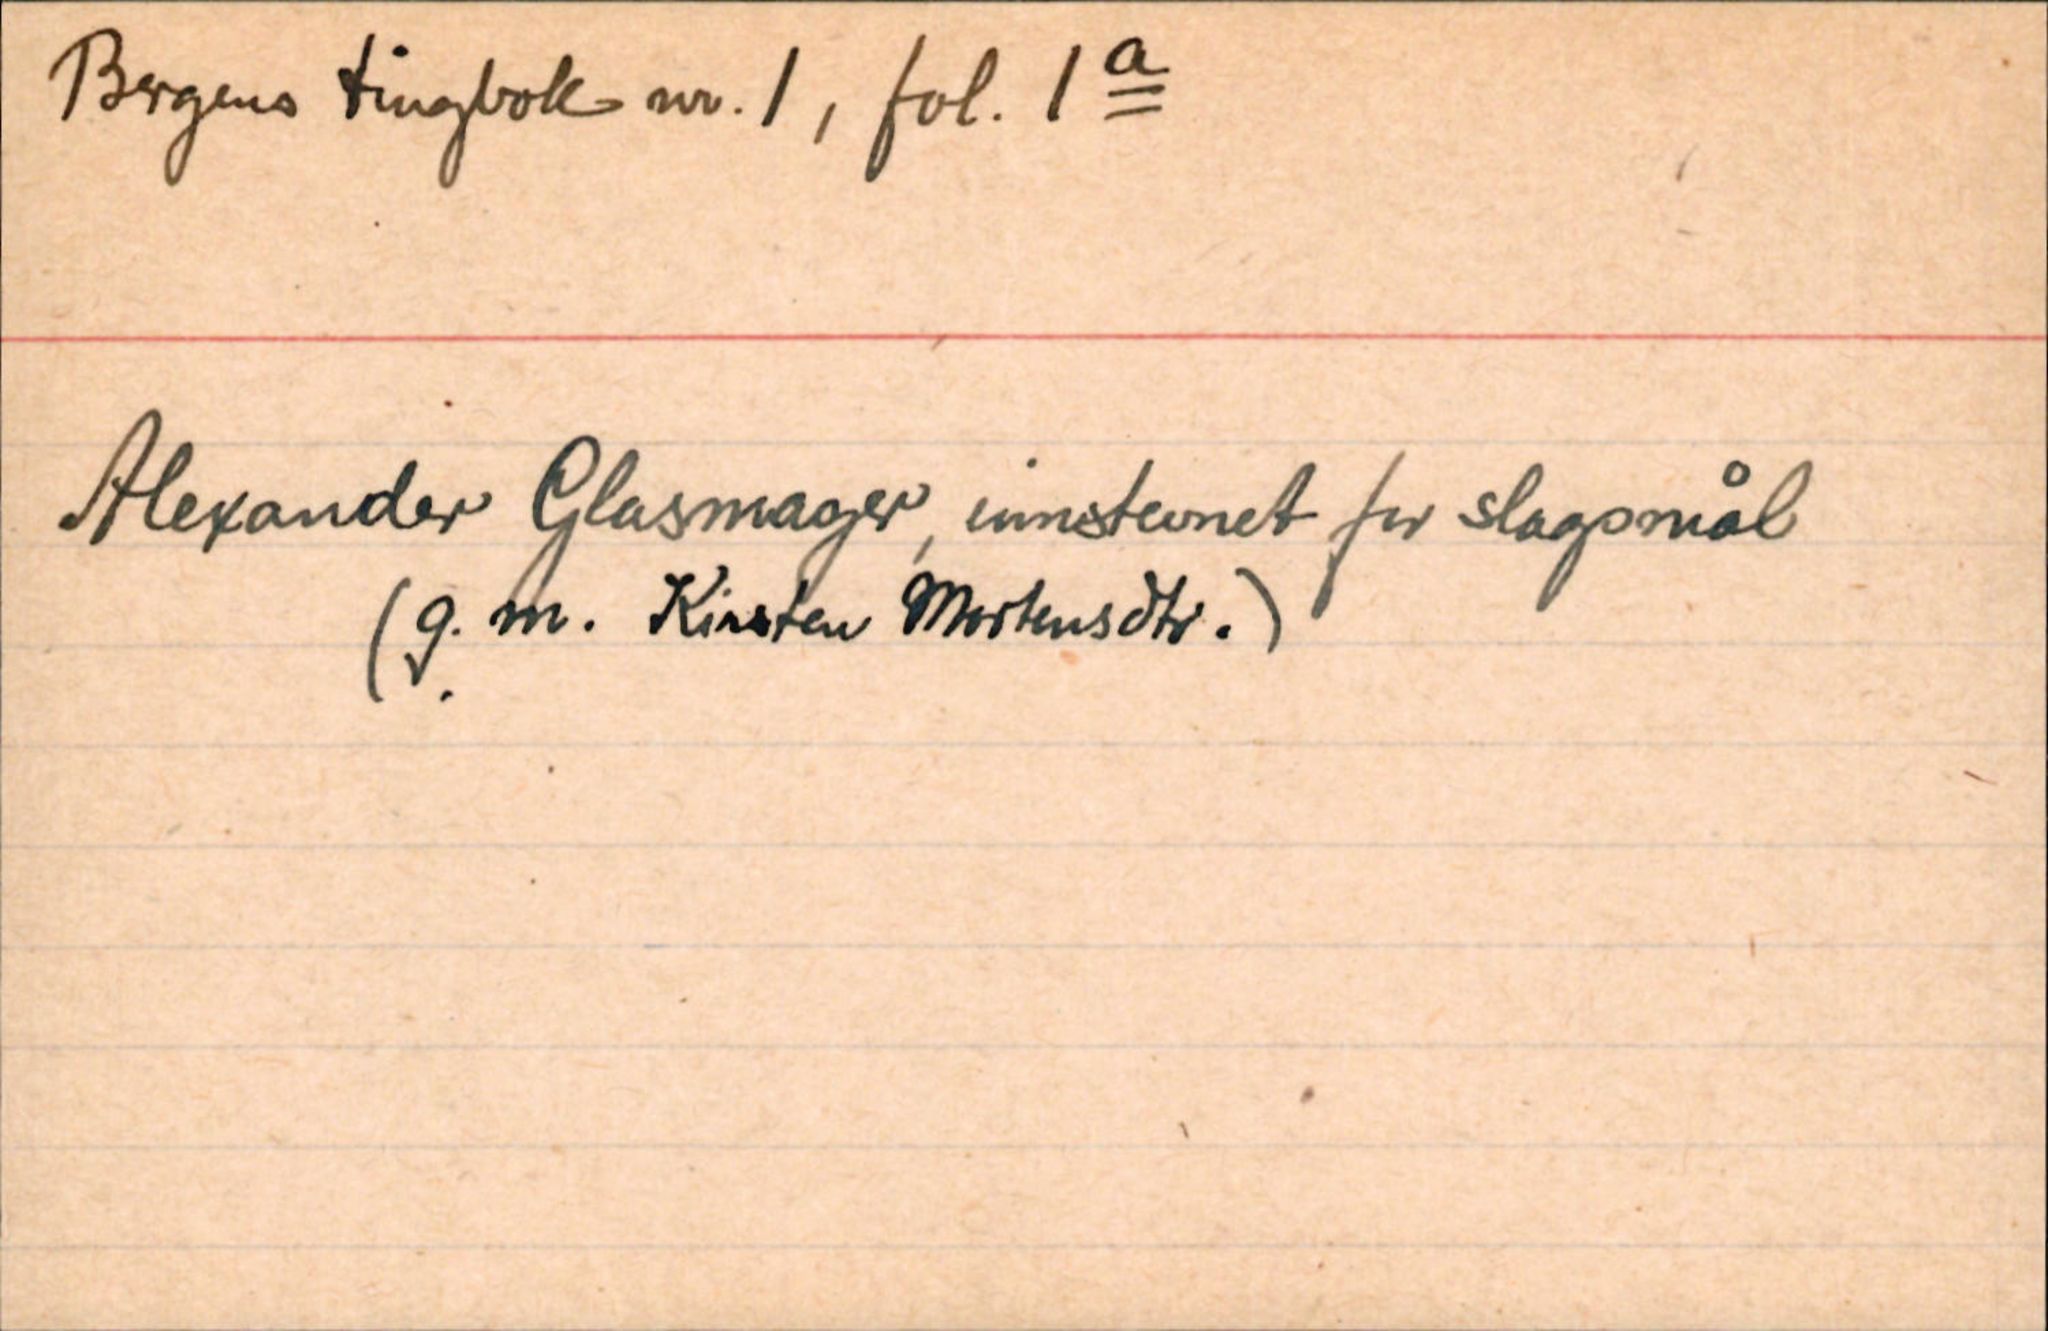 Bergens tingbok nr. 1, fol. 1 a
Alexander Glasmager, innstevnet for slagsmål
(g. m. Kirsten Mortensdtr.)